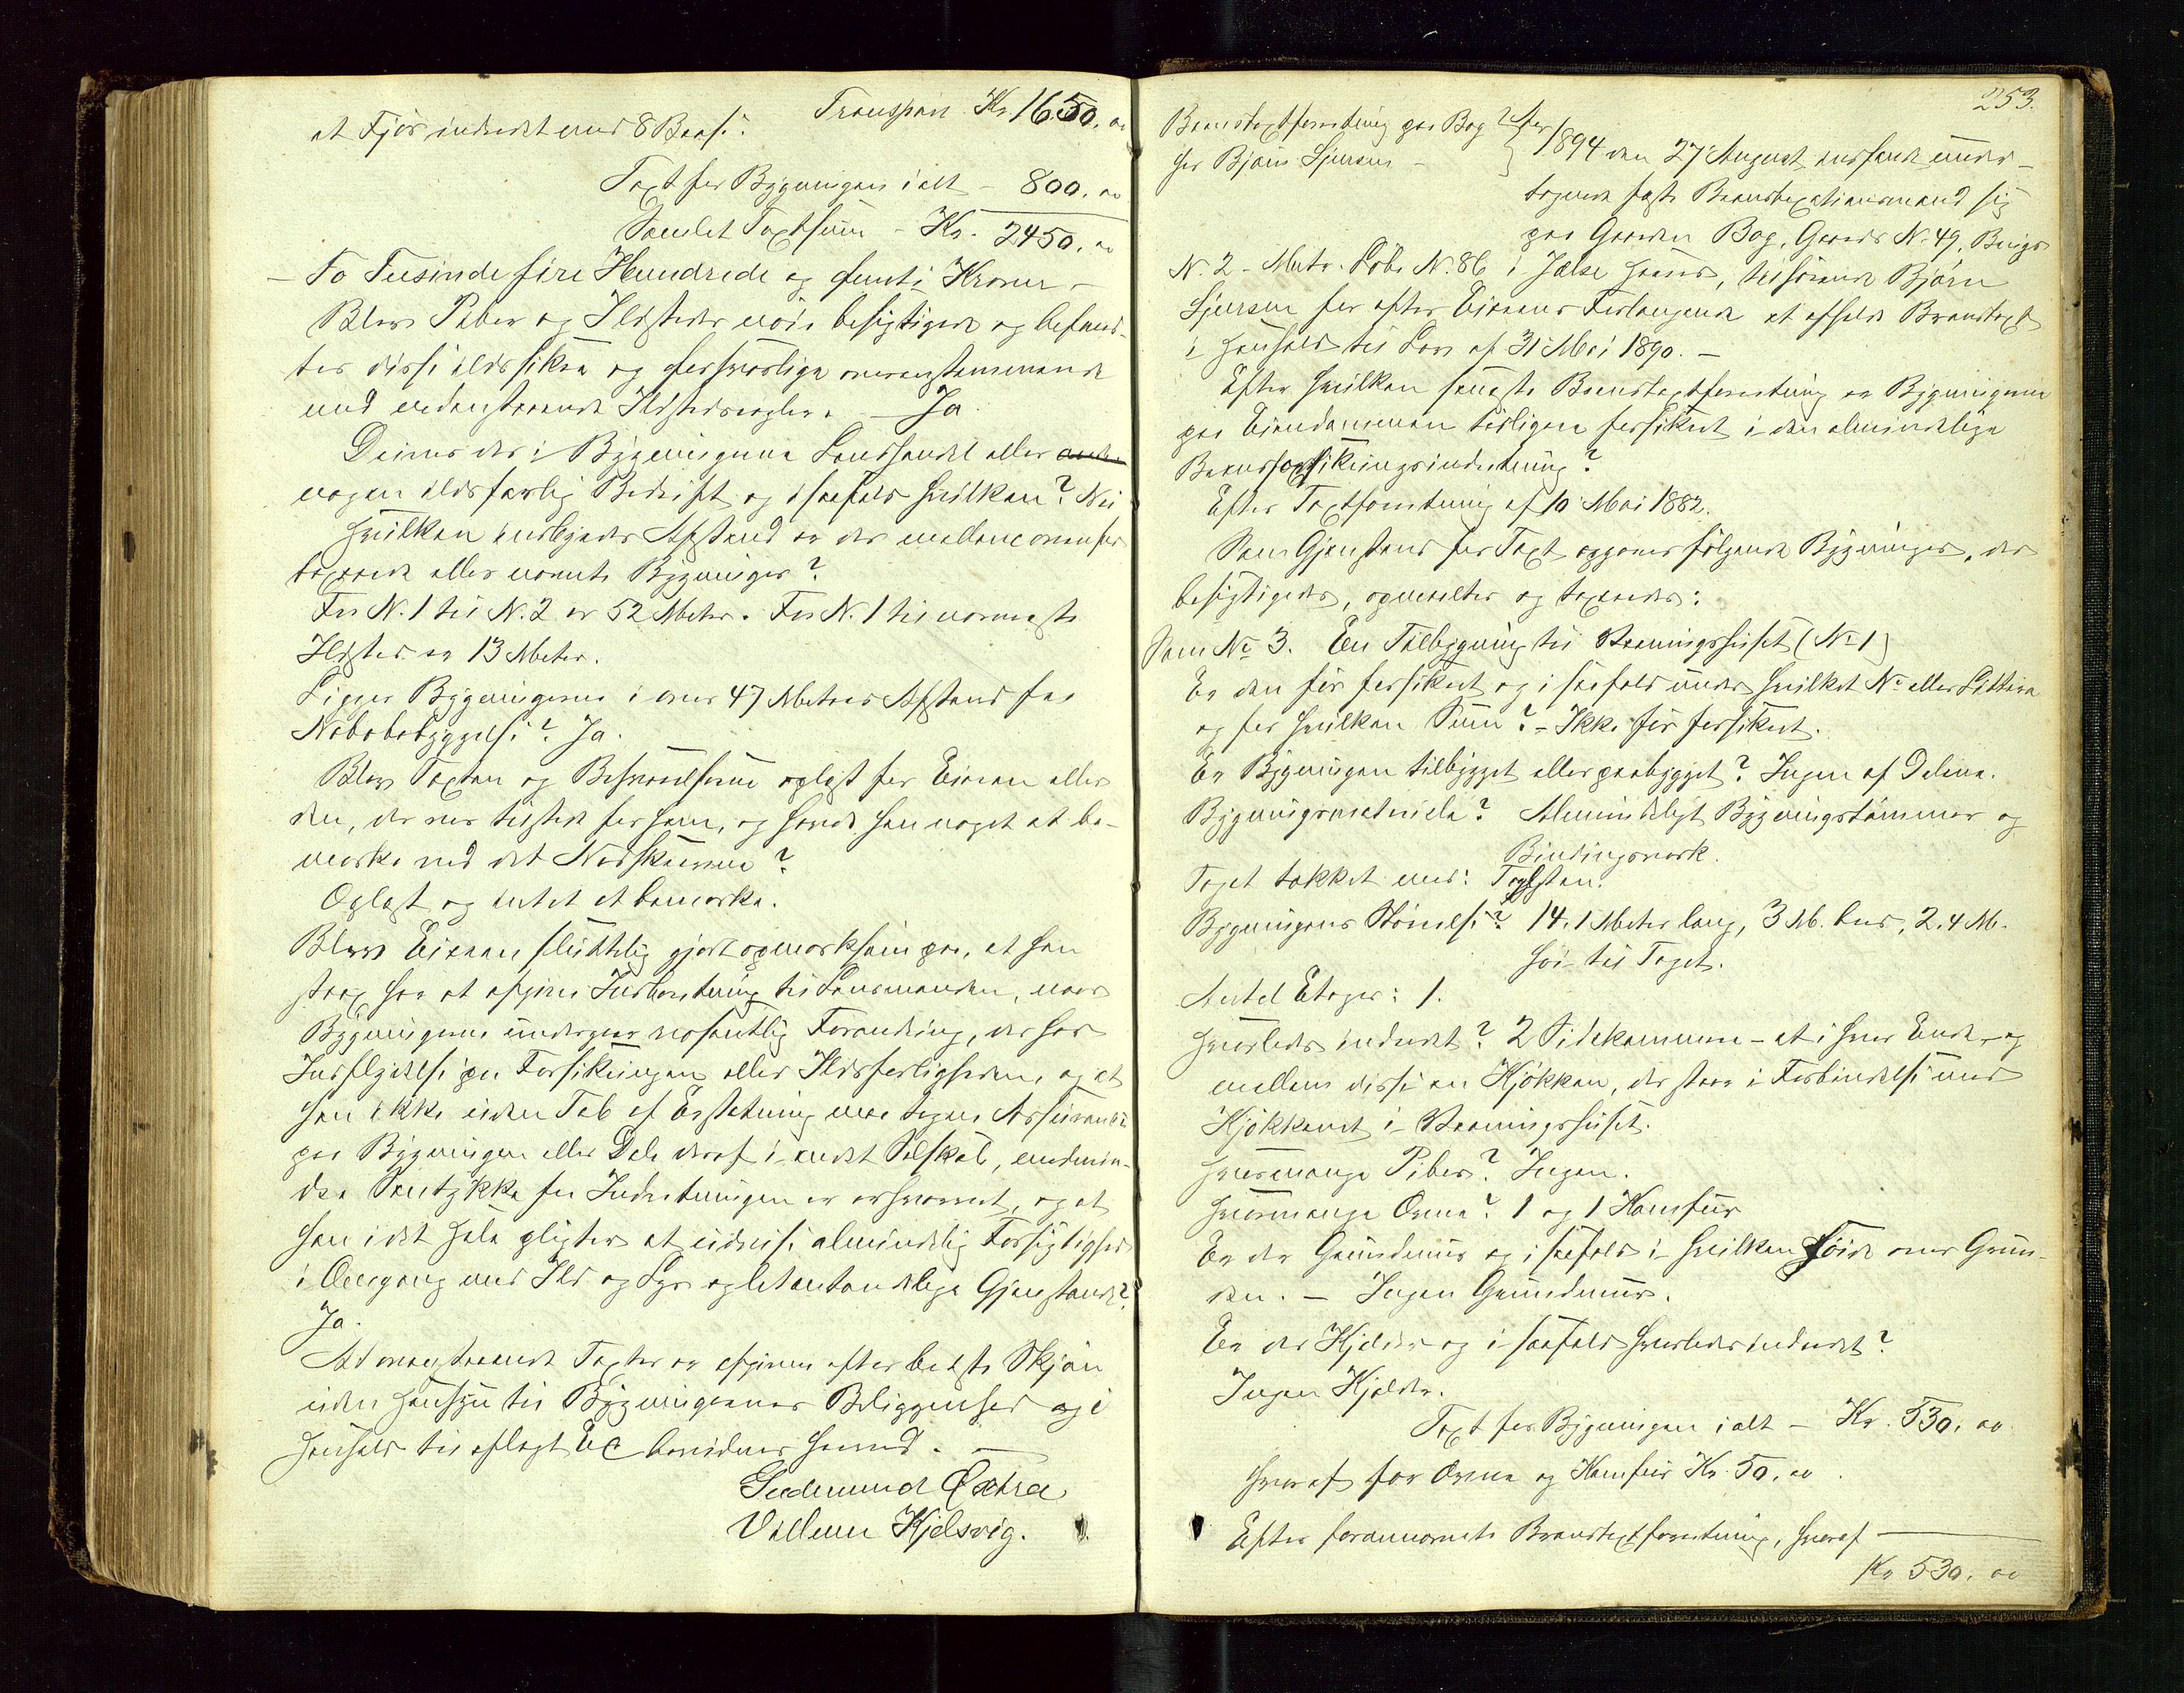 Transport Kr 1650, 00
et Fjös indredet med 8 Baase.
Taxt for Bygningen i alt - 800. 00
Samlet Taxtsum - Kr. 2450. 00
- To Tusinde fire Hundrede og femti Kroner -
Blev Piber og Ildsteder nöie besigtigede og befand-
tes disse ildssikre og forsvarlige overensstemmende
med nedenstaaende Ildstedsregler. - Ja.
Drives der i Bygningerne Landhandel eller
nogen ildsfarlig Bedrift og isaafald hvilken? Nei
Hvilken indbyrdes Afstand er der mellem ovenfor
taxerede eller nævnte Bygninger?
Fra N. 1 til N. 2 er 52 Meter. Fra N. 1 til nærmeste
Ildsted er 13 Meter.
Ligger Bygningerne i over 47 Meters Afstand fra
Nabobebyggelse? Ja.
Blev Taxten og Besvarelserne oplæst for Eieren eller
den, der var tilstede for ham, og havde han noget at be-
mærke ved det Nedskrevne?
Oplæst og intet at bemærke.
Blev Eieren sluttelig gjort opmærksom paa, at han
strax har at afgive Indberetning til Lensmanden, naar
Bygningerne undergaar væsentlig Forandring, der har
Indflydelse paa Forsikringen eller Ildsfarligheden, og at
han ikke uden Tab af Erstatning maa tegne Assurance
paa Bygningen eller Dele deraf i andet Selskab, medmin-
dre Samtykke fra Indretningen er erhvervet, og at
han i det Hele pligter at udvise almindelig Forsigtighed
i Omgang med Ild og Lys og letantændelige Gjenstande?
Ja.
At ovenstaaende Taxter er afgivne efter bedste Skjön
uden Hensyn til Bygningernes Beliggenhed og i
Henhold til aflagt Ed bevidner herved. -
Gudmund Østraa
Villum Hjelsvig.
253.
Brandtaxtforretning paa Bog
for Björn Sjursen -
Aar 1894 den 27 August indfandt under-
tegnede faste Brandtaxationsmænd sig
paa Gaarden Bog, Gaards N. 49, Brugs
N. 2 - Matr. Löbe N. 86 i Jelse Herred, tilhörende Björn
Sjursen for efter Eierens Forlangende at afholde Brandtaxt
i Henhold til Lov af 31 Mai 1890. -
Efter hvilken seneste Brandtaxtforretning er Bygningerne
paa Eiendommen tidligere forsikret i den almindelige
Brandforsikringsindretning?
Efter Taxtforretning af 10 Mai 1882.
Som Gjenstand for Taxt opgaves fölgende Bygninger, der
besigtigedes, opmaaltes og taxeredes:
Som No 3. En Tilbygning til Vaaningshuset (No 1)
Er den för forsikret og i saafald under hvilket No eller Littera
og for hvilken Sum? - Ikke för forsikret.
Er Bygningen tilbygget eller paabygget? Ingen af Delene.
Bygningsmateriale? Almindeligt Bygningstömmer og
Bindingsværk.
Taget tækket med: Taglsten.
Bygningens Störrelse? 14.1 Meter lang, 3 M. bred, 2.4 M.
höi til Taget.
Antal Etager: 1.
Hvorledes indredet? 2 Sidekammere - et i hver Ende, og
mellem disse en Kjökken, der staar i Forbindelse med
Kjökkenet i Vaaningshuset.
Hvormange Piber? Ingen.
Hvormange Ovne? 1 og 1 Komfur
Er der Grundmur og i saafald i hvilken Höide over Grun-
den. - Ingen Grundmur.
Er der Kjelder og i saafald hvorledes indredet?
Ingen Kjelder.
Taxt for Bygningen i alt - Kr. 530. 00
Hvoraf for Ovne og Komfur Kr. 50. 00.
Efter forannævnte Brandtaxtforretning, hvoraf
Kr 530. 00